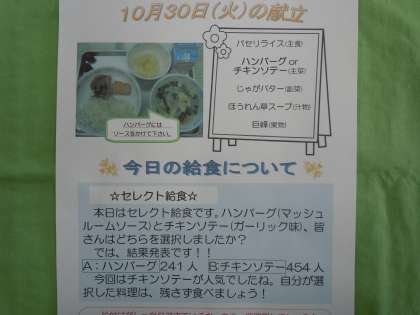 10月30日(火)の献立
パセリライス(主食)
ハンバーグor
チキンソテー(主菜)
じゃがバター(副菜)
ほうれん草スープ(汁物)
巨峰(果物)
ハンバーグには
ソースをかけて下さい。
今日の給食について
☆セレクト給食☆
本日はセレクト給食です。ハンバーグ(マッシュ
ルームソース)とチキンソテー(ガーリック味)、皆
さんはどちらを選択しましたか？
では、結果発表です！！
A：ハンバーグ241人 B:チキンソテー454人
今回はチキンソテーが人気でしたね。自分が選
択した料理は、残さず食べましょう！